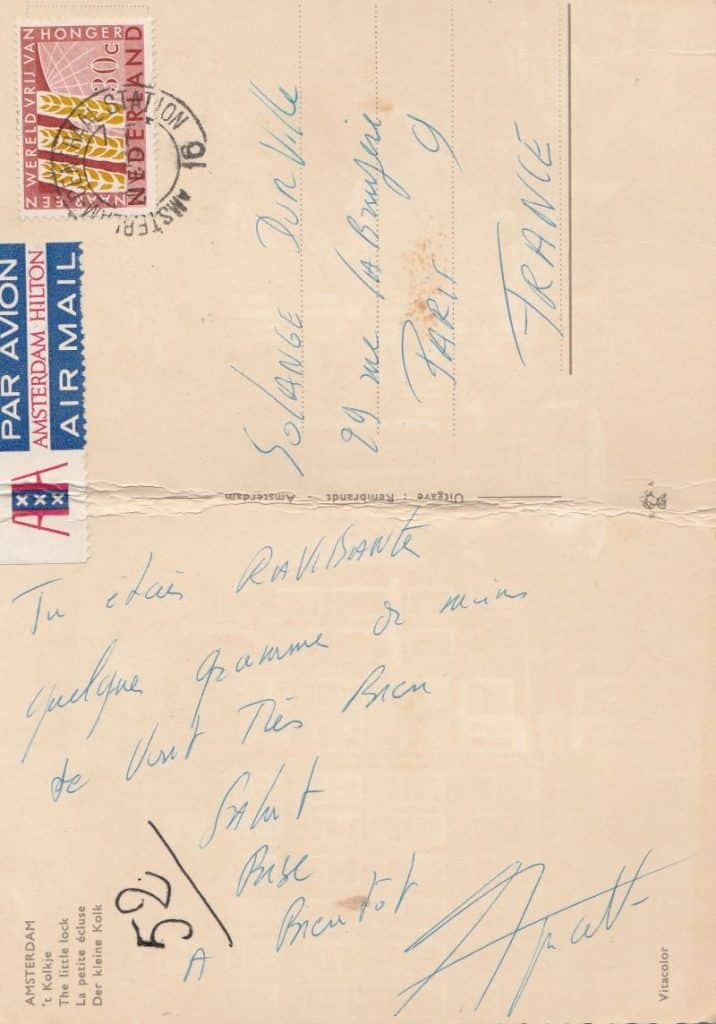 NAAR EEN WERELD VRIJ VAN HONGER
30c
NEDERLAND
AMSTERDAM STATION
16
PAR AVION
AMSTERDAM HILTON
AIR MAIL
SOLANGE DORVILLE
29 rue LA Bruyère
PARIS 9
FRANCE
Uitgave : Rembrandt - Amsterdam
Tu étais RAVISSANTE
quelque gramme de moins
te vont Très Bien
SALUT
BISE
A Bientot
52
AMSTERDAM
't Kolkje
The little lock
La petite écluse
Der kleine Kolk
Vitacolor